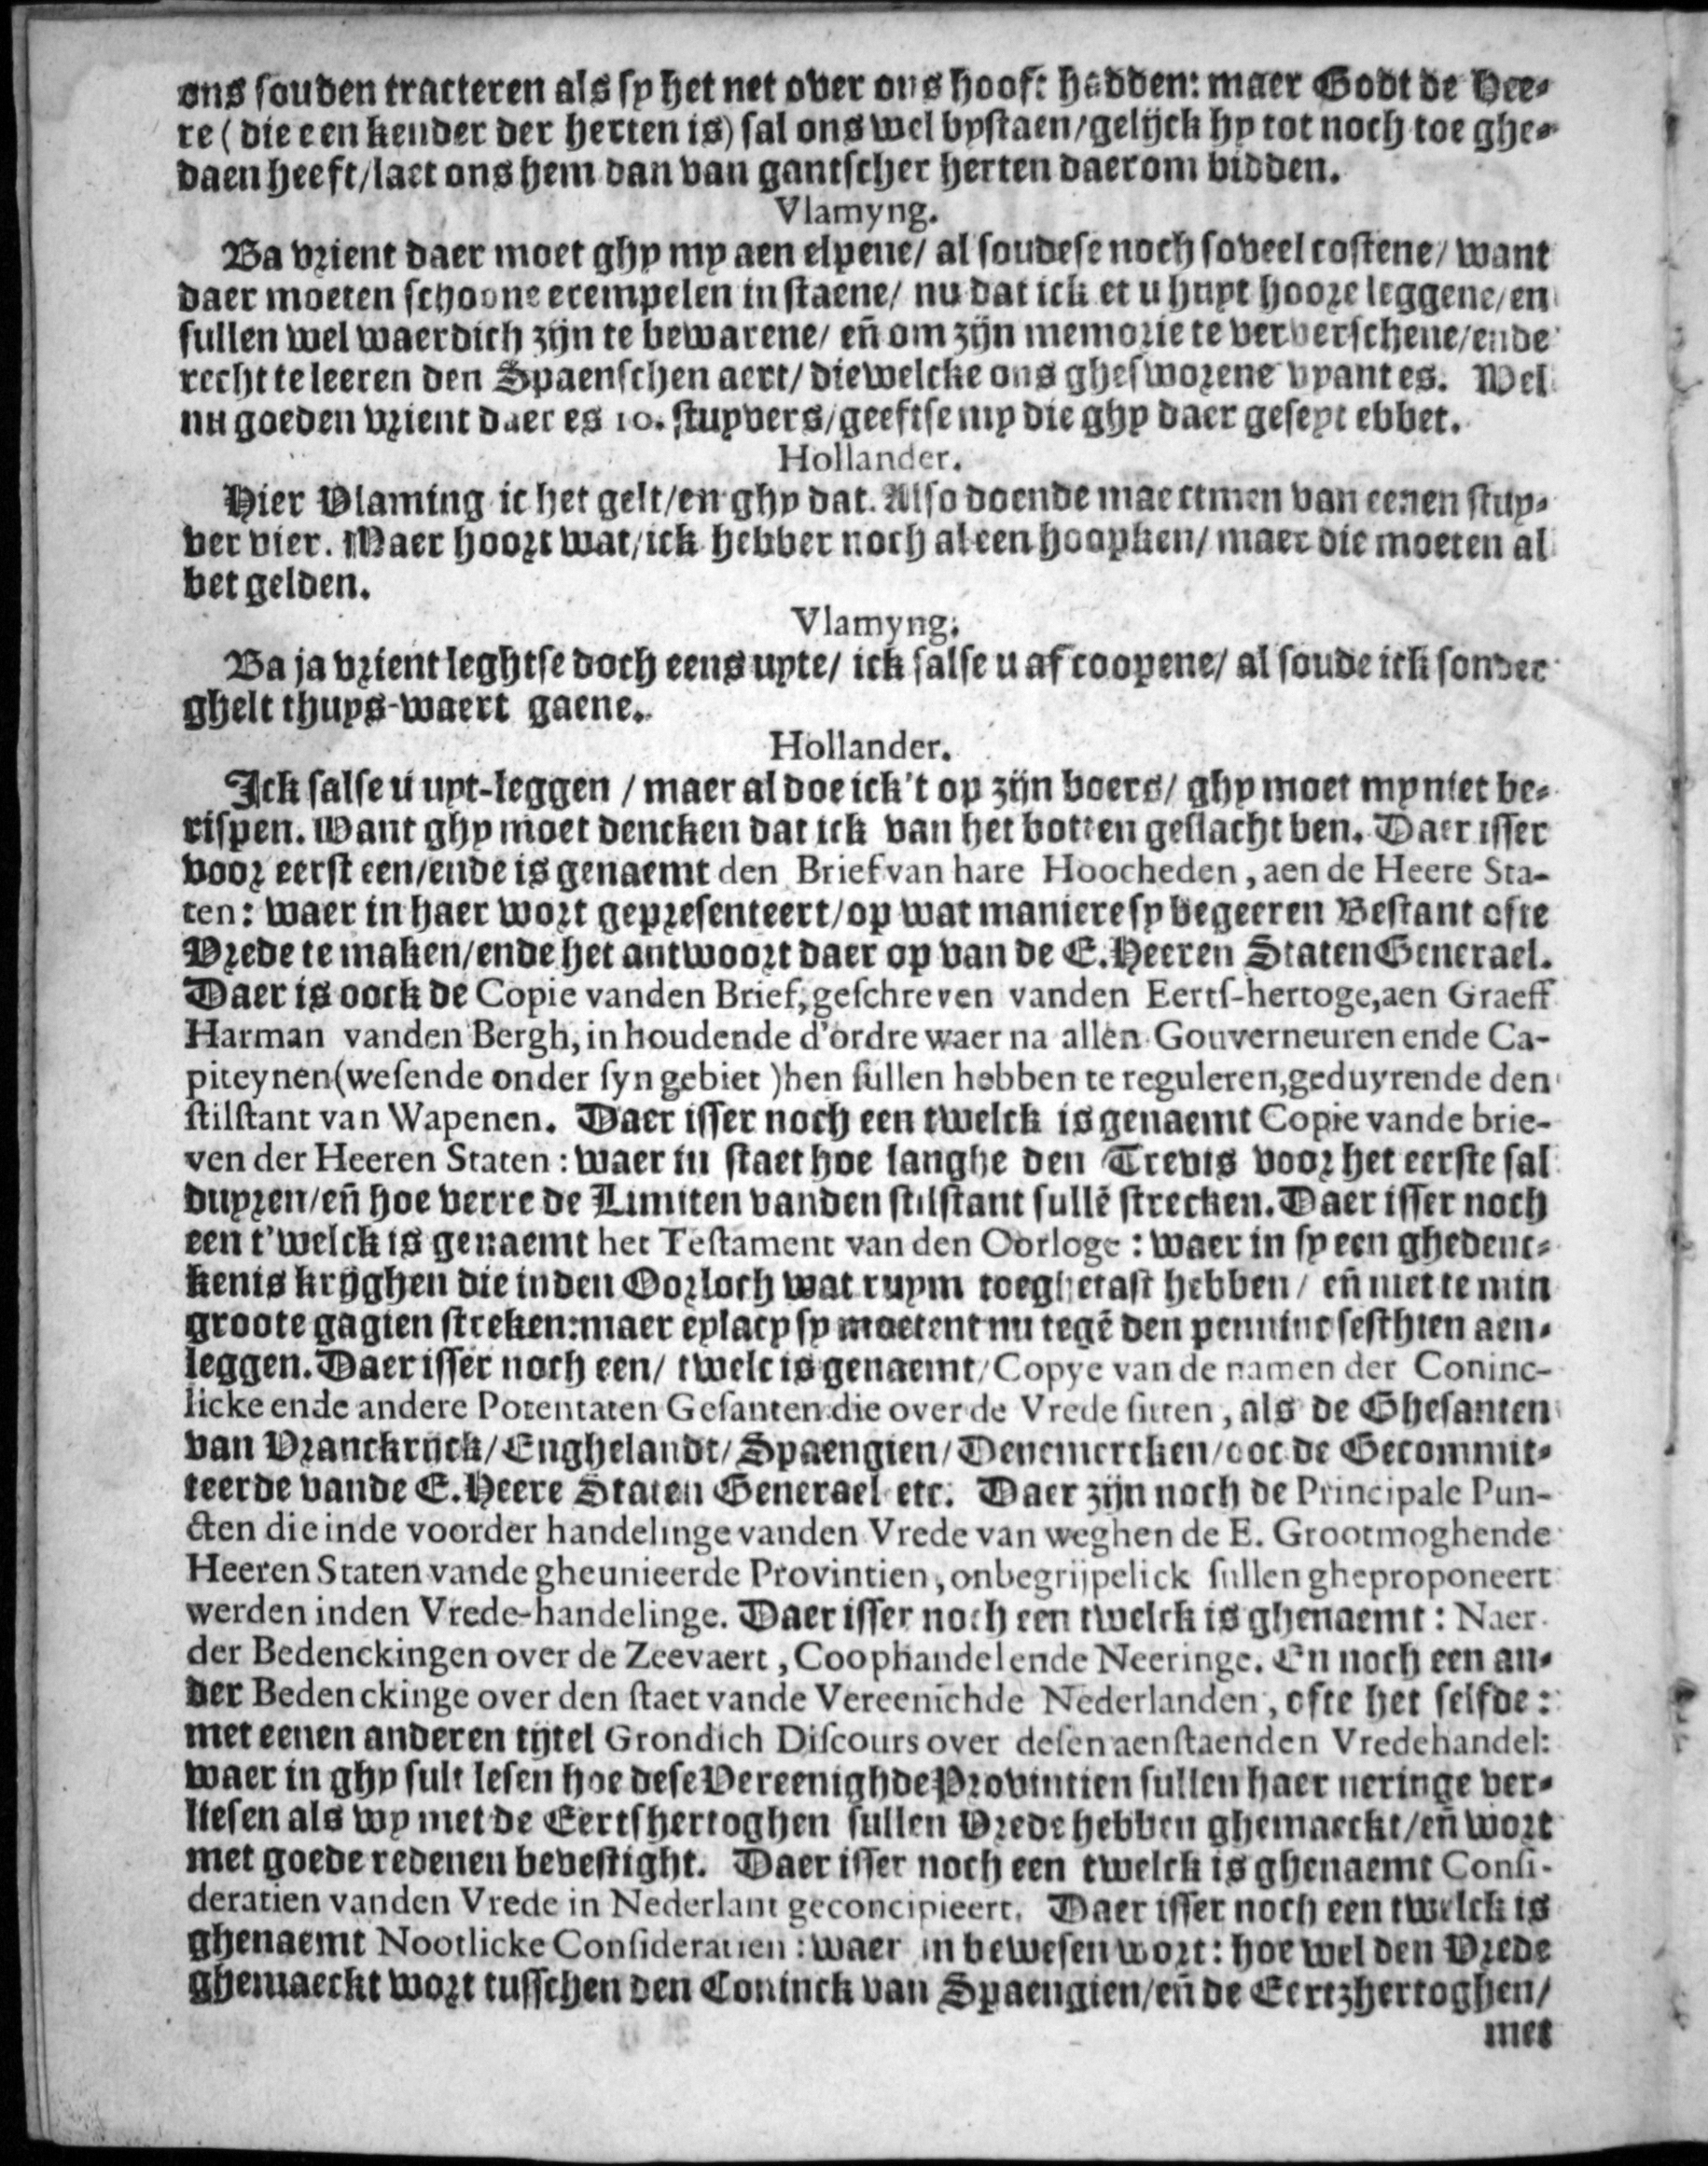 ons souden tracteren als sy het net over ons hooft hadden: maer Godt de Hee-
re (die een kender der herten is) sal ons wel bystaen/gelijck hy tot noch toe ghe-
daen heeft/laet ons hem dan van gantscher herten daerom bidden.
Vlamyng.
Ba vrient daer moet ghy my aen elpene/ al soudese noch soveel costene/ want
daer moeten schoone exempelen in staene/ nu dat ick et u huyt hoore leggene/en
sullen wel waerdich zijn te bewarene/ eñ om zijn memorie te ververschene/ende
recht te leeren den Spaenschen aert/ diewelcke ons ghesworene vyant es. Wel
nu goeden vrient daer es 10. stuyvers/geeftse my die ghy daer geseyt ebbet.
Hollander.
Hier Vlaming ic het gelt/en ghy dat. Also doende maecktmen van eenen stuy-
ver vier. Maer hoort wat/ick hebber noch al een hoopken/ maer die moeten al
bet gelden.
Vlamyng.
Ba ja vrient leghtse doch eens uyte/ ick salse u af coopene/ al soude ick sonder
ghelt thuys-waert gaene.
Hollander.
Ick salse u uyt-leggen / maer al doe ick't op zijn boers/ ghy moet my niet be-
rispen. Want ghy moet dencken dat ick van het botten geslacht ben. Daer isser
voor eerst een/ende is genaemt den Brief van hare Hoocheden, aen de Heere Sta-
ten: waer in haer wort gepresenteert/op wat maniere sy begeeren Bestant ofte
Vrede te maken/ende het antwoort daer op van de E. Heeren Staten Generael.
Daer is oock de Copie vanden Brief, geschreven vanden Eerts-hertoge, aen Graeff
Harman vanden Bergh, in houdende d'ordre waer na allen Gouverneuren ende Ca-
piteynen (wesende onder syn gebiet )hen sullen hebben te reguleren, geduyrende den
stilstant van Wapenen. Daer isser noch een twelck is genaemt Copie vande brie-
ven der Heeren Staten: waer in staet hoe langhe den Trevis voor het eerste sal
duyren/eñ hoe verre de Limiten vanden stilstant sullē strecken. Daer isser noch
een t'welck is genaemt het Testament van den Oorloge: waer in sy een ghedenc-
kenis krijghen die inden Oorloch wat ruym toeghetast hebben/ eñ met te min
groote gagien streken: maer eylacy sy moetent nu tegē den penninc sesthien aen-
leggen. Daer isser noch een/ twelc is genaemt/ Copye van de namen der Coninc-
licke ende andere Potentaten Gesanten die over de Vrede siten, als de Ghesanten
van Vranckrijck/ Enghelandt/ Spaengien/ Denemercken/ ooc de Gecommit-
teerde vande E. Heere Staten Generael etc. Daer zijn noch de Principale Pun-
cten die inde voorder handelinge vanden Vrede van weghen de E. Grootmoghende
Heeren Staten vande gheunieerde Provintien, onbegrijpelick sullen gheproponeert
werden inden Vrede-handelinge. Daer isser noch een twelck is ghenaemt: Naer-
der Bedenckingen over de Zeevaert, Coophandel ende Neeringe. En noch een an-
der Bedenckinge over den staet vande Vereenichde Nederlanden, ofte het selfde:
met eenen anderen tijtel Grondich Discours over desen aenstaenden Vredehandel:
waer in ghy sult lesen hoe dese Vereenighde Provintien sullen haer neringe ver-
liesen als wy met de Eertshertoghen sullen Vrede hebben ghemaeckt/eñ wort
met goede redenen bevestight. Daer isser noch een twelck is ghenaemt Consi-
deratien vanden Vrede in Nederlant geconcipieert. Daer isser noch een twelck is
ghenaemt Nootlicke Consideratien: waer in bewesen wort: hoe wel den Vrede
ghemaeckt wort tusschen den Coninck van Spaengien/eñ de Eertzhertoghen/
met